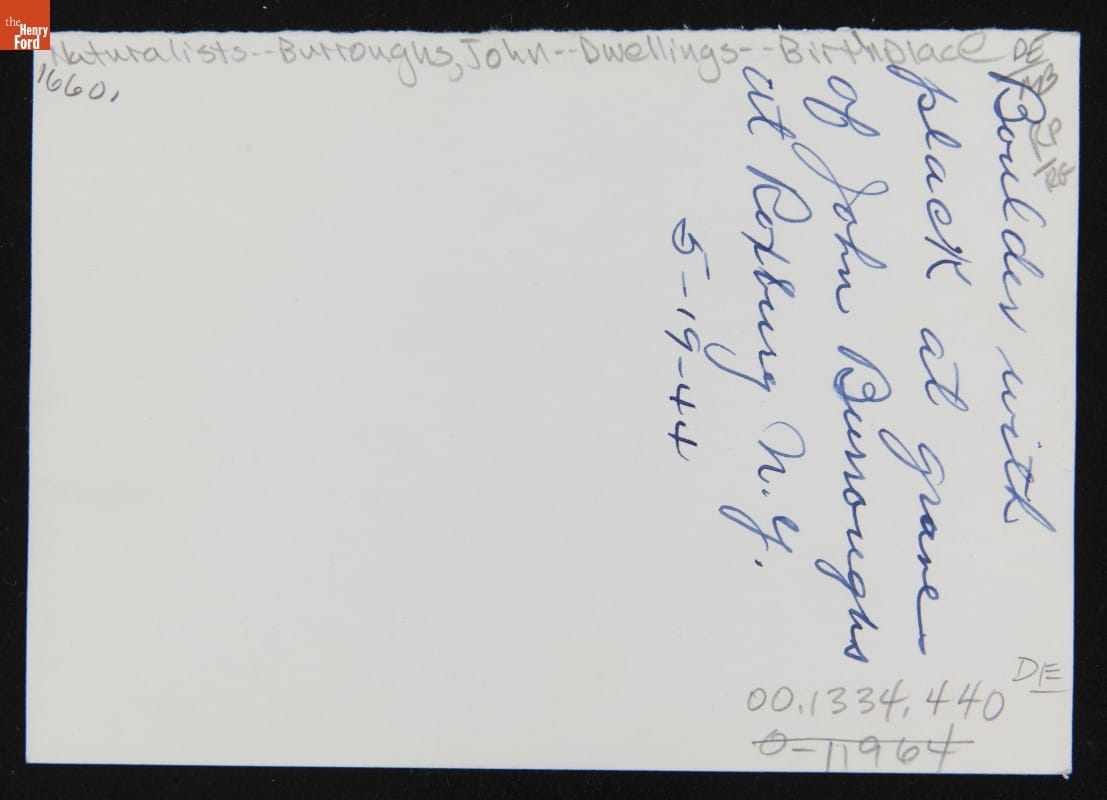 the
Henry
Ford
Naturalists--Burroughs, John--Dwellings--Birthplace
1660.
Boulder with
plack at grave
of John Burroughs
at Roxbury N.Y.
5-19-44
DE
00.1334.440
0-11964